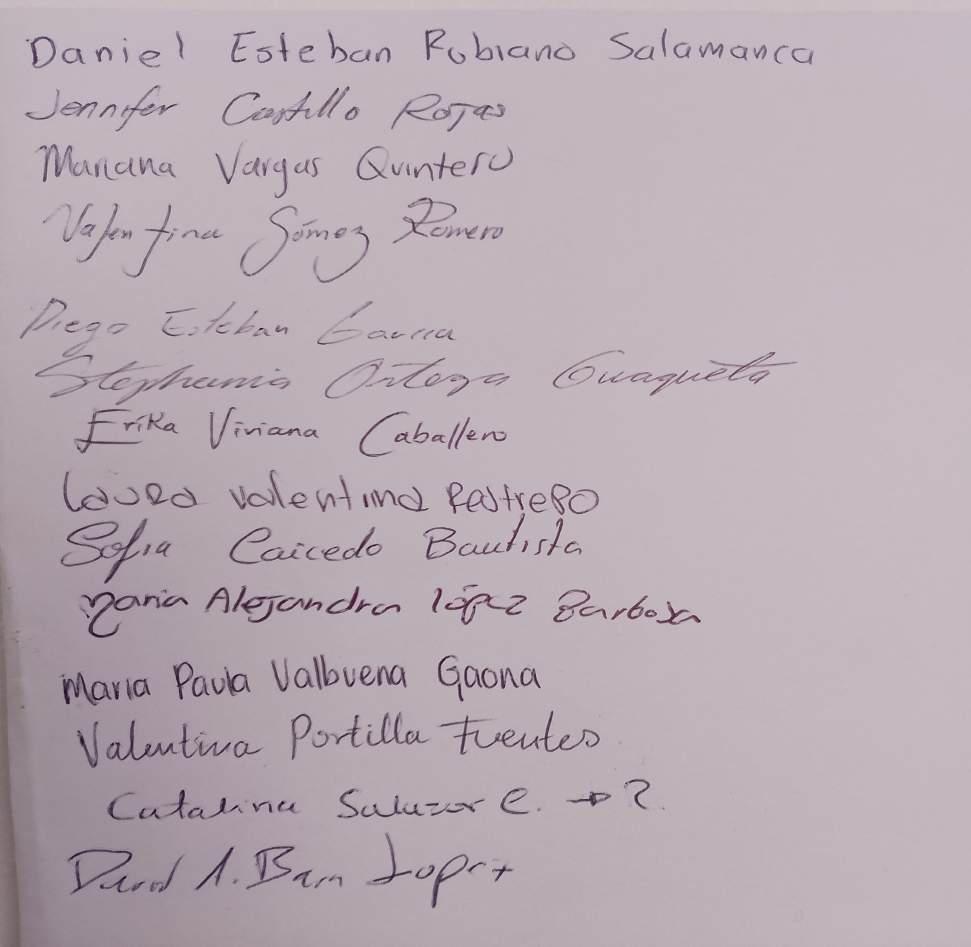 Daniel Esteban Rubiano Salamanca
Jennifer Castillo Rojas
Mariana Vargas Quintero
Valentina Gómez Romero
Diego Esteban Garcia
Stephania Ortega Guaqueta
Erika Viviana Caballero
Laura valentina Restrepo
Sofia Caicedo Bautista
Maria Alejandra lópez Barbosa
Maria Paula Valbuena Gaona
Valentina Portilla Fuentes
Catalina Salazar C. → 2.
David A.